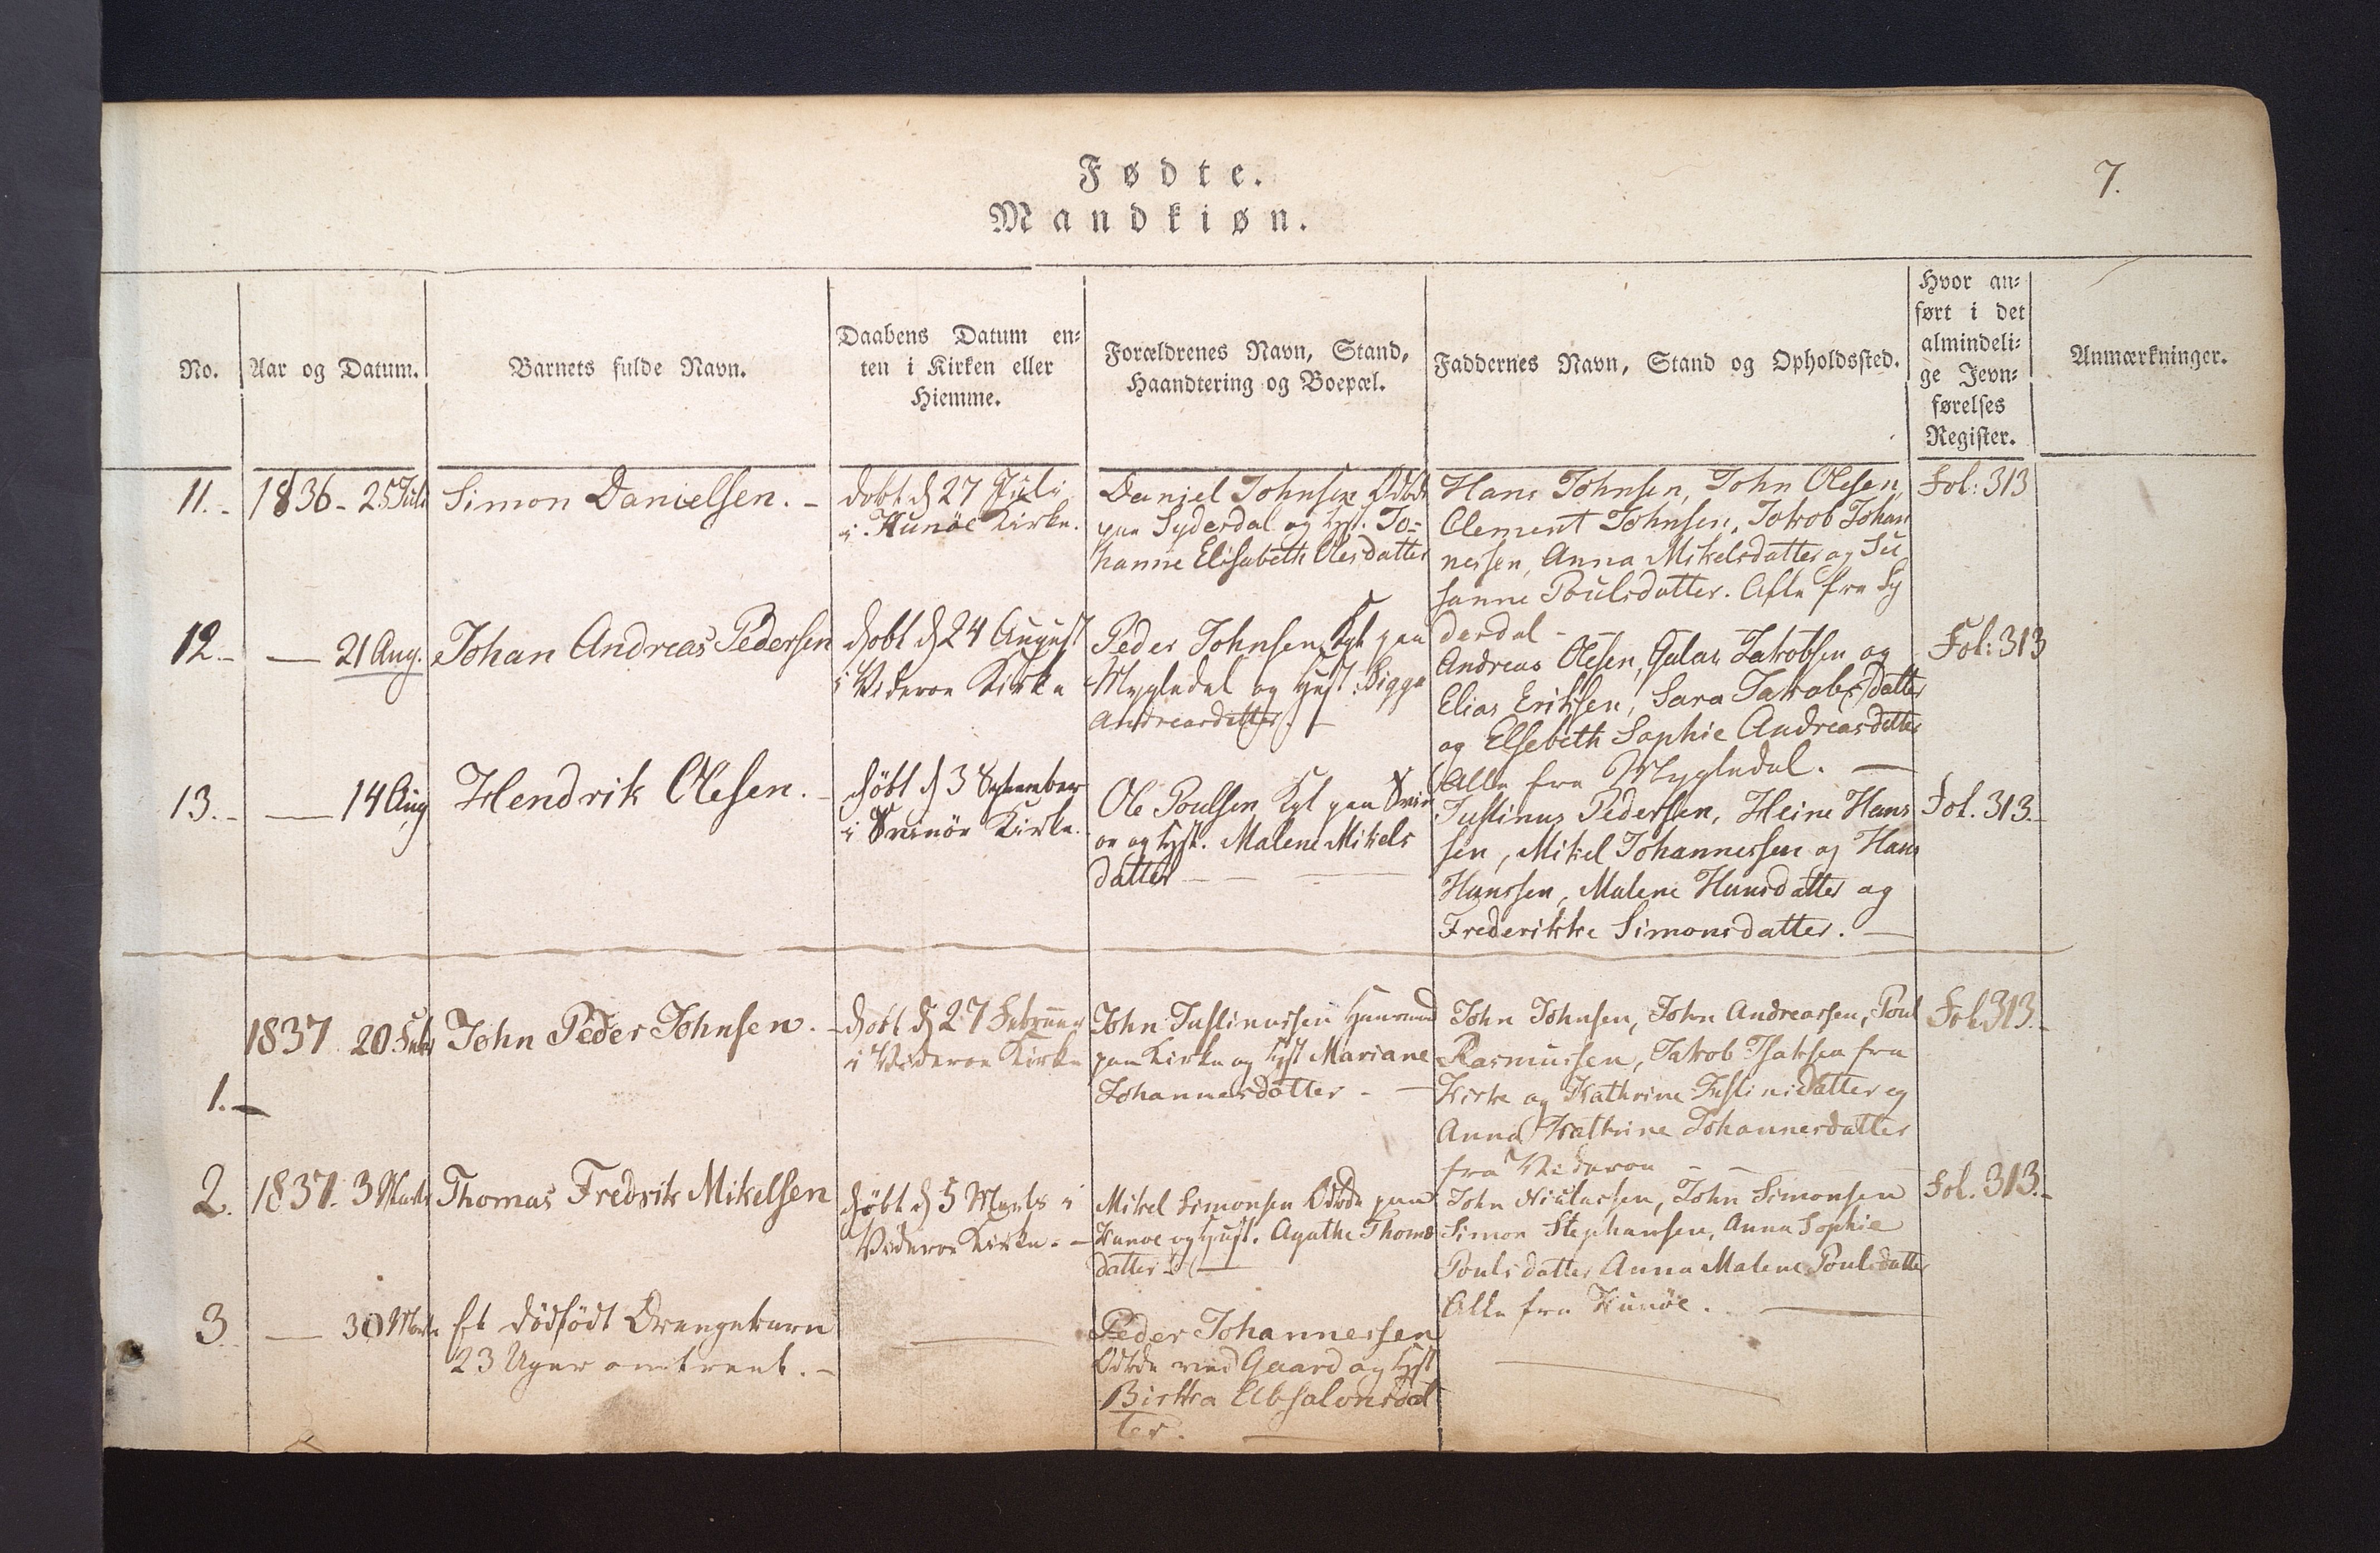 Fødte.
7.
Mandkiøn.
No.
Aar og Datum.
Barnets fulde Navn.
Daabens Datum en-
ten i Kirken eller
Hiemme.
Forældrenes Navn, Stand,
Haandtering og Boepæl.
Faddernes Navn, Stand og Opholdssted.
Hvor an-
ført i det
almindeli-
ge Jevn-
førelses
Register.
Anmærkninger.
11.-
1836- 25 Juli
Simon Danielsen. -
Døbt d 27 Juli
i Kunöe Kirke.
Daniel Johnsen
paa Syderdal og Hst. Jo-
hanne Elisabeth Olesdatter
Hans Johnsen, John Olesen,
Clement Johnsen, Jakob Johan
nessen, Anna Mikelsdatter og Su
sanne Poulsdatter. Alle fra Sy
derdal -
Fol: 313
12.-
— 21 Aug.
Johan Andreas Pedersen
døbt d 24 August
i Videroe Kirke
Peder Johnsen Kgl paa
Mygledal og Hust: Sigga
Andreasdatter. -
Andreas Olesen, Jakobsen og
Elias Eriksen, Sara Jakobsdatter
og Elsebeth Sophie Andreasdatter
Alle fra Mygledal. —
Fol: 313
13.-
— 14 Aug
Hendrik Olesen. -
døbt d 3 September
i Svinöe Kirke.
Ole Poulsen Kgl paa Svin
oe og Hst. Malene Mikels
datter — —
Justinus Pedersen, Heine Hans
sen, Mikel Johannessen og Hans
Hanssen, Malene Hansdatter og
Frederikke Simonsdatter. —
Fol. 313.-
1.-
1837 20 Febr
John Peder Johnsen. -
døbt d 27 Februar
i Videroe Kirke
John Justinussen Huusmand
paa Kirke og Hst Mariane
Johannesdatter - —
John Johnsen, John Andreassen, Poul
Rasmussen, Jakob Isaksen fra
Kirke og Kathrine Justinidatter og
Anna Kathrine Johannesdatter
fra Videroe - -
Fol 313.-
2.
1837. 3 Marts
Thomas Fredrik Mikelsen
døbt d 5 Marts i
Videroe Kirke. -
Mikel Simonsen paa
Kunoe og Hust. Agathe Thomas
datter —
John Niclassen, John Simonsen
Simon Stephansen, Anna Sophie
Poulsdatter Anna Malene Poulsdatter
Alle fra Kunöe. —
Fol. 313.-
3.
— 30 Marts
Et dödfödt Drengebarn
23 Uger omtrent. -
Peder Johannessen
ved Gaard og Hst
Birtha Absalonsdat
ter. —